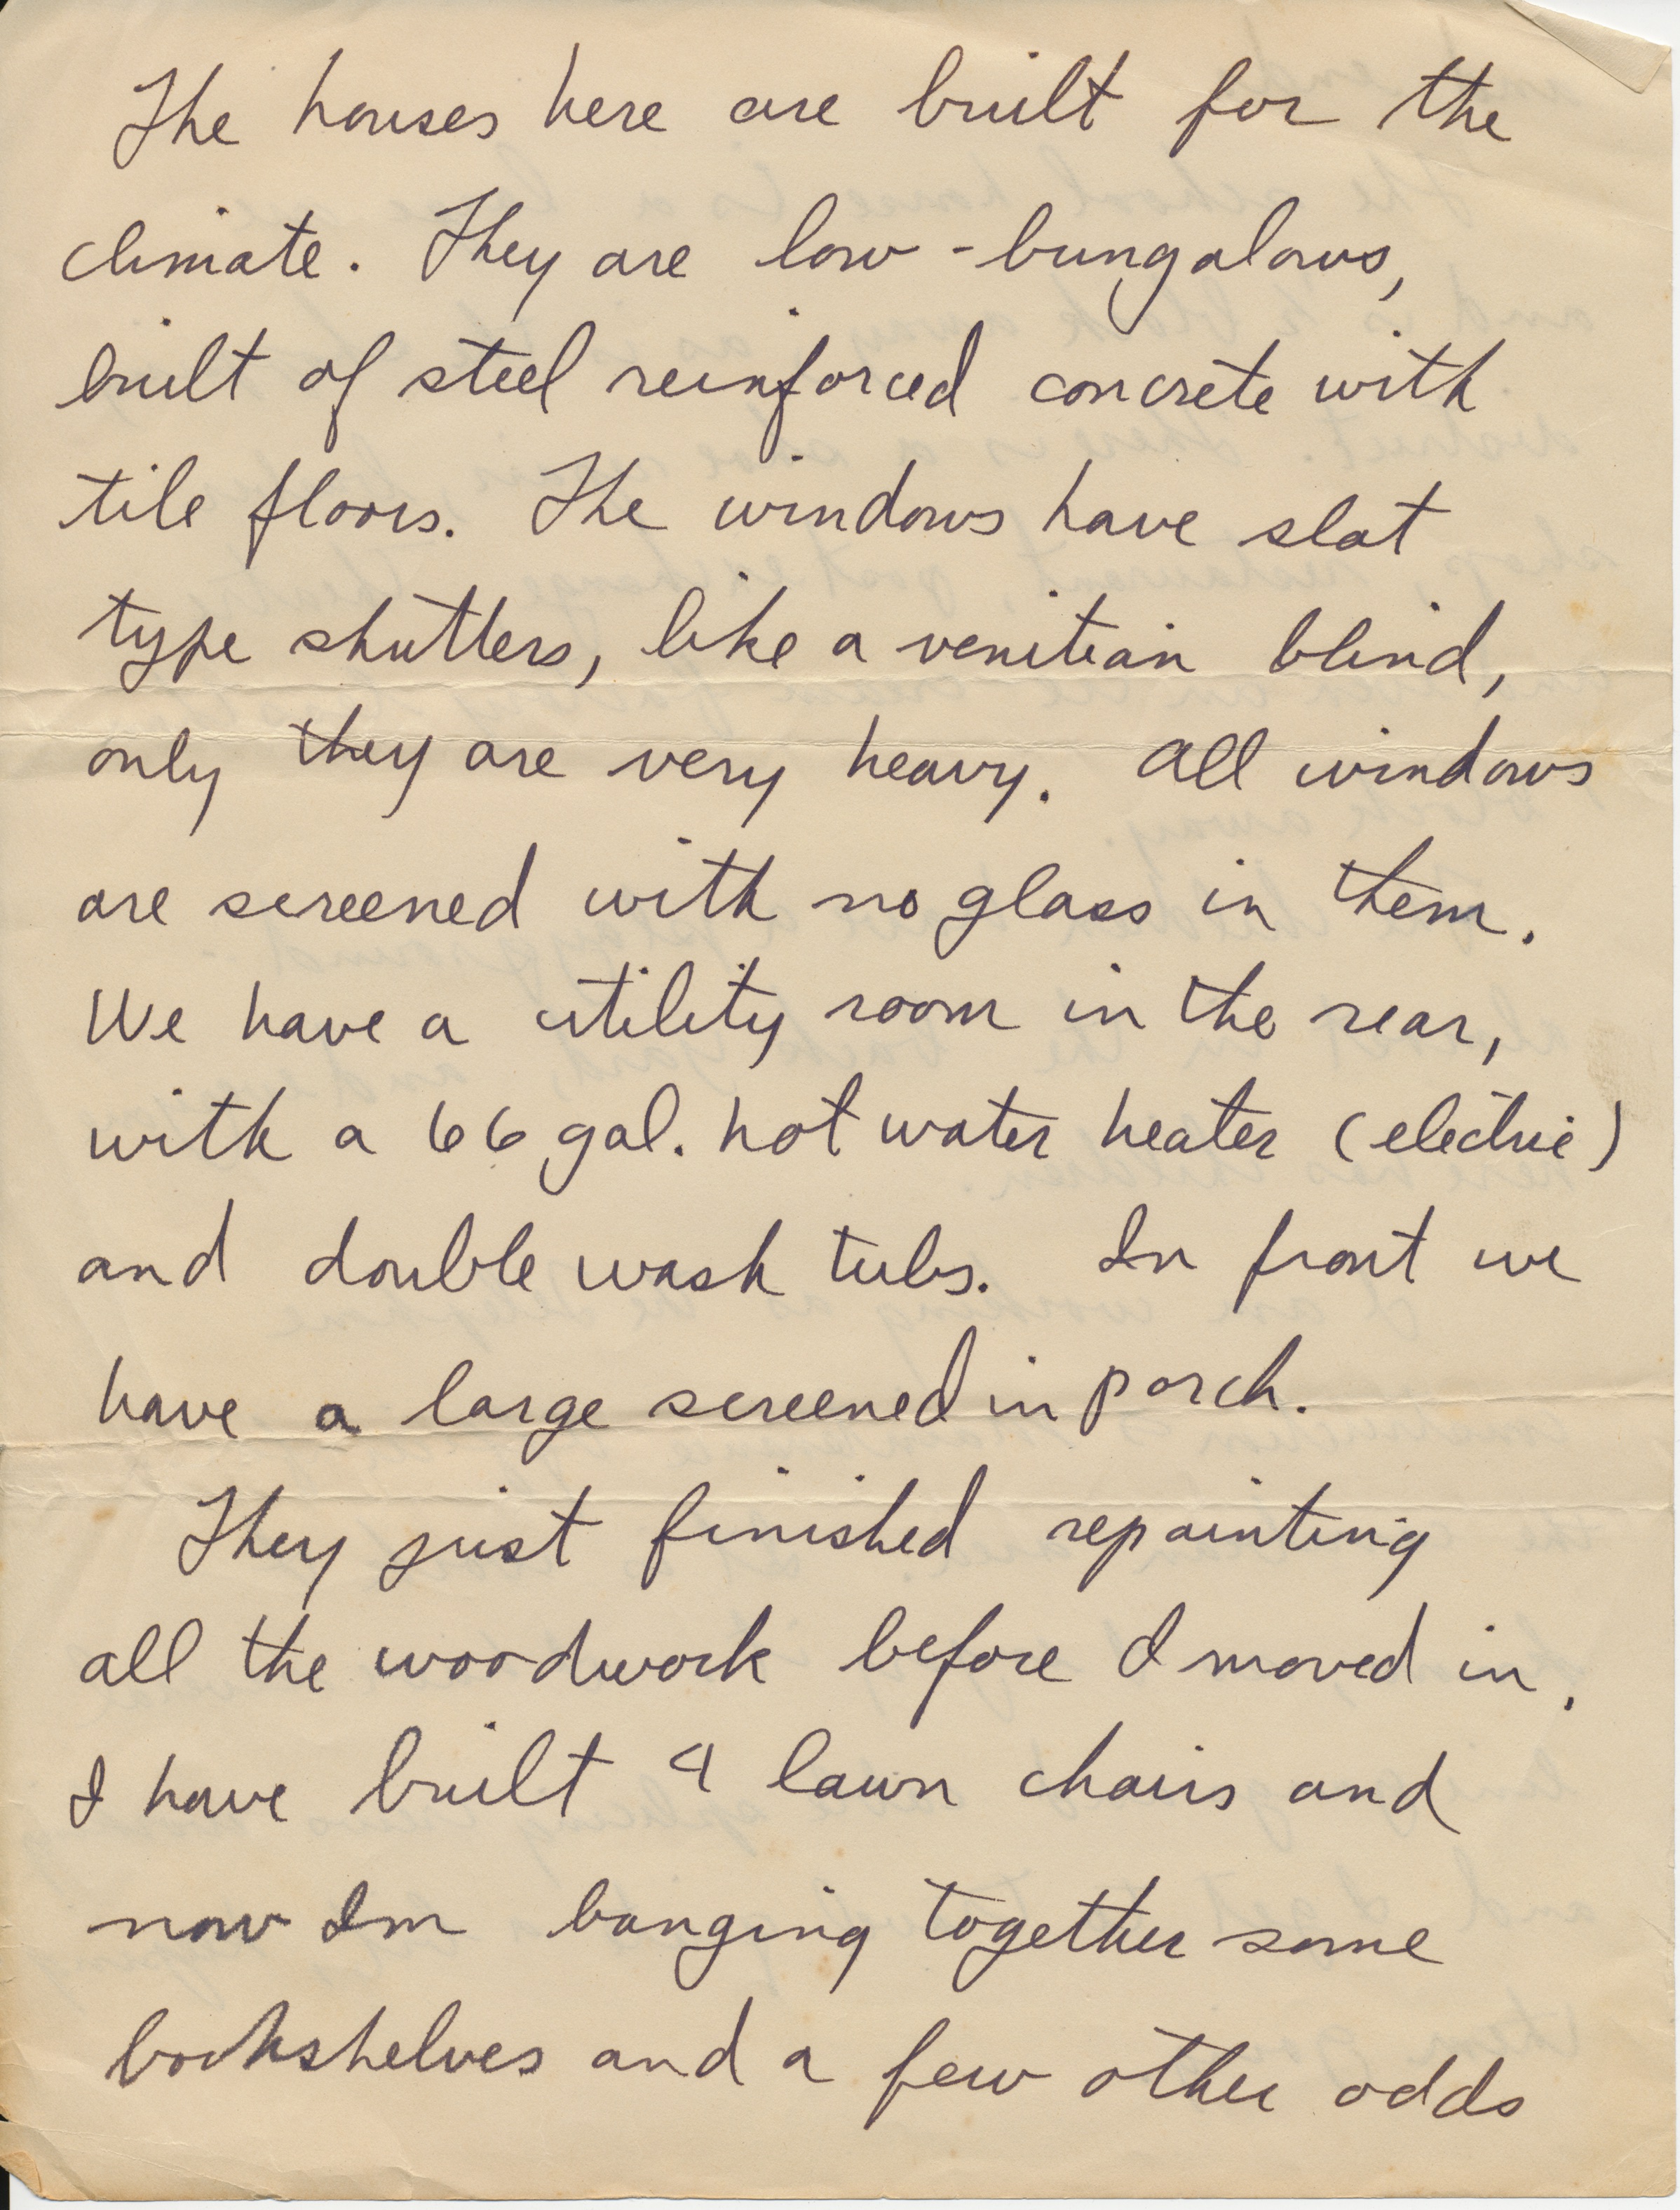 The houses here are built for the
climate. They are low - bungalows,
built of steel reinforced concrete with
tile floors. The windows have slat
type shutters, like a venitian blind,
only they are very heavy. All windows
are screened with no glass in them.
We have a utility room in the rear,
with a 66 gal. hot water heater (electric)
and double wash tubs. In front we
have a large screened in porch.
They just finished repainting
all the woodwork before I moved in.
I have built 4 lawn chairs and
now Im banging together some
bookshelves and a few other odds